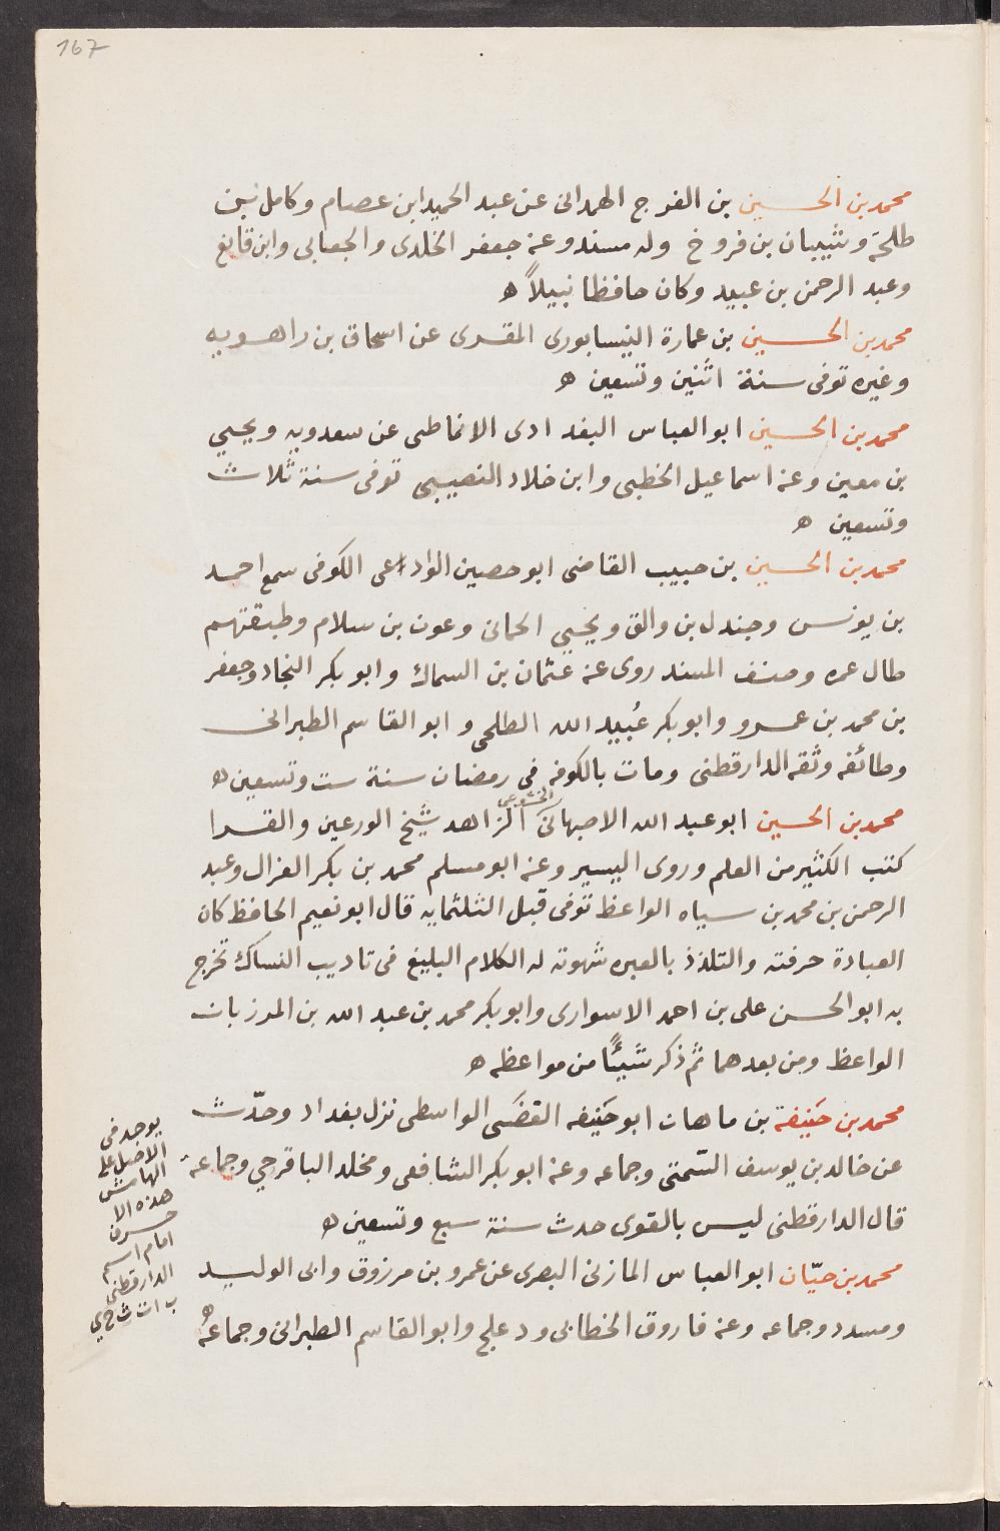 167
محمد بن الحسين بن الفرج الهمدانى عن عبد الحميد ابن عصام وكامل بن
طلحة وشيبان بن فروخ وله مسند وعنه جعفر الخلدى والجعابى وابن قانع
وعبد الرحمن بن عبيد وكان حافظا نبيلاً ه
محمد بن الحسين بن عمارة النيسابورى المقرى عن اسحاق بن راهويه
وغيره توفى سنة اثنين وتسعين ه
محمد بن الحسين ابو العباس البغدادى الانماطى عن سعدويه ويحيي
بن معين وعنه اسماعيل الخطبى وابن خلاد النصيبى توفى سنة ثلاث
وتسعين ه
محمد بن الحسين بن حبيب القاضى ابو حصين الوادعى الكوفى سمع احمد
بن يونس وجندل بن والق ويحيي الحمانى وعون بن سلام وطبقتهم
طال عمره وصنف المسند روى عنه عثمان بن السماك وابو بكر النجاد وجعفر
بن محمد بن عمرو وابو بكر عُبيد الله الطلحى وابو القاسم الطبرانى
وطائفه وثقه الدارقطنى ومات بالكوفه فى رمضان سنة ست وتسعين ه
محمد بن الحسين ابو عبد الله الاصبهانى الخشوعى الزاهد شيخ الورعين والقرا
كتب الكثير من العلم وروى اليسير وعنه ابو مسلم محمد بن بكر الغزال وعبد
الرحمن بن محمد بن سياه الواعظ توفى قبل الثلثمايه قال ابو نعيم الحافظ كان
العبادة حرفته والتلذذ بالعبره شهوته له الكلام البليغ فى تاديب النساك تخرج
به ابو الحسن على بن احمد الاسوارى وابو بكر محمد بن عبد الله بن المرزبان
الواعظ ومن بعدهما ثم ذكر شيئًا من مواعظه ه
محمد بن حَنيفة بن ماهان ابو حَنيفه القصَبى الواسطى نزل بغداد وحدّث
عن خالد بن يوسف السّمتى وجماعه وعنه ابو بكر الشافعى ومخلد الباقرحي وجماعة
قال الدارقطنى ليس بالقوى حدث سنة سبع وتسعين ه
محمد بن حيّان ابو العباس المازنى البصرى عن عمرو بن مرزوق وابى الوليد
ومسدد وجماعه وعنه فاروق الخطابى ودعلج وابو القاسم الطبرانى وجماعة ه
يوجد فى
الاصل على
الهامش
هذه الا
حرف
امام اسم
الدارقطنى